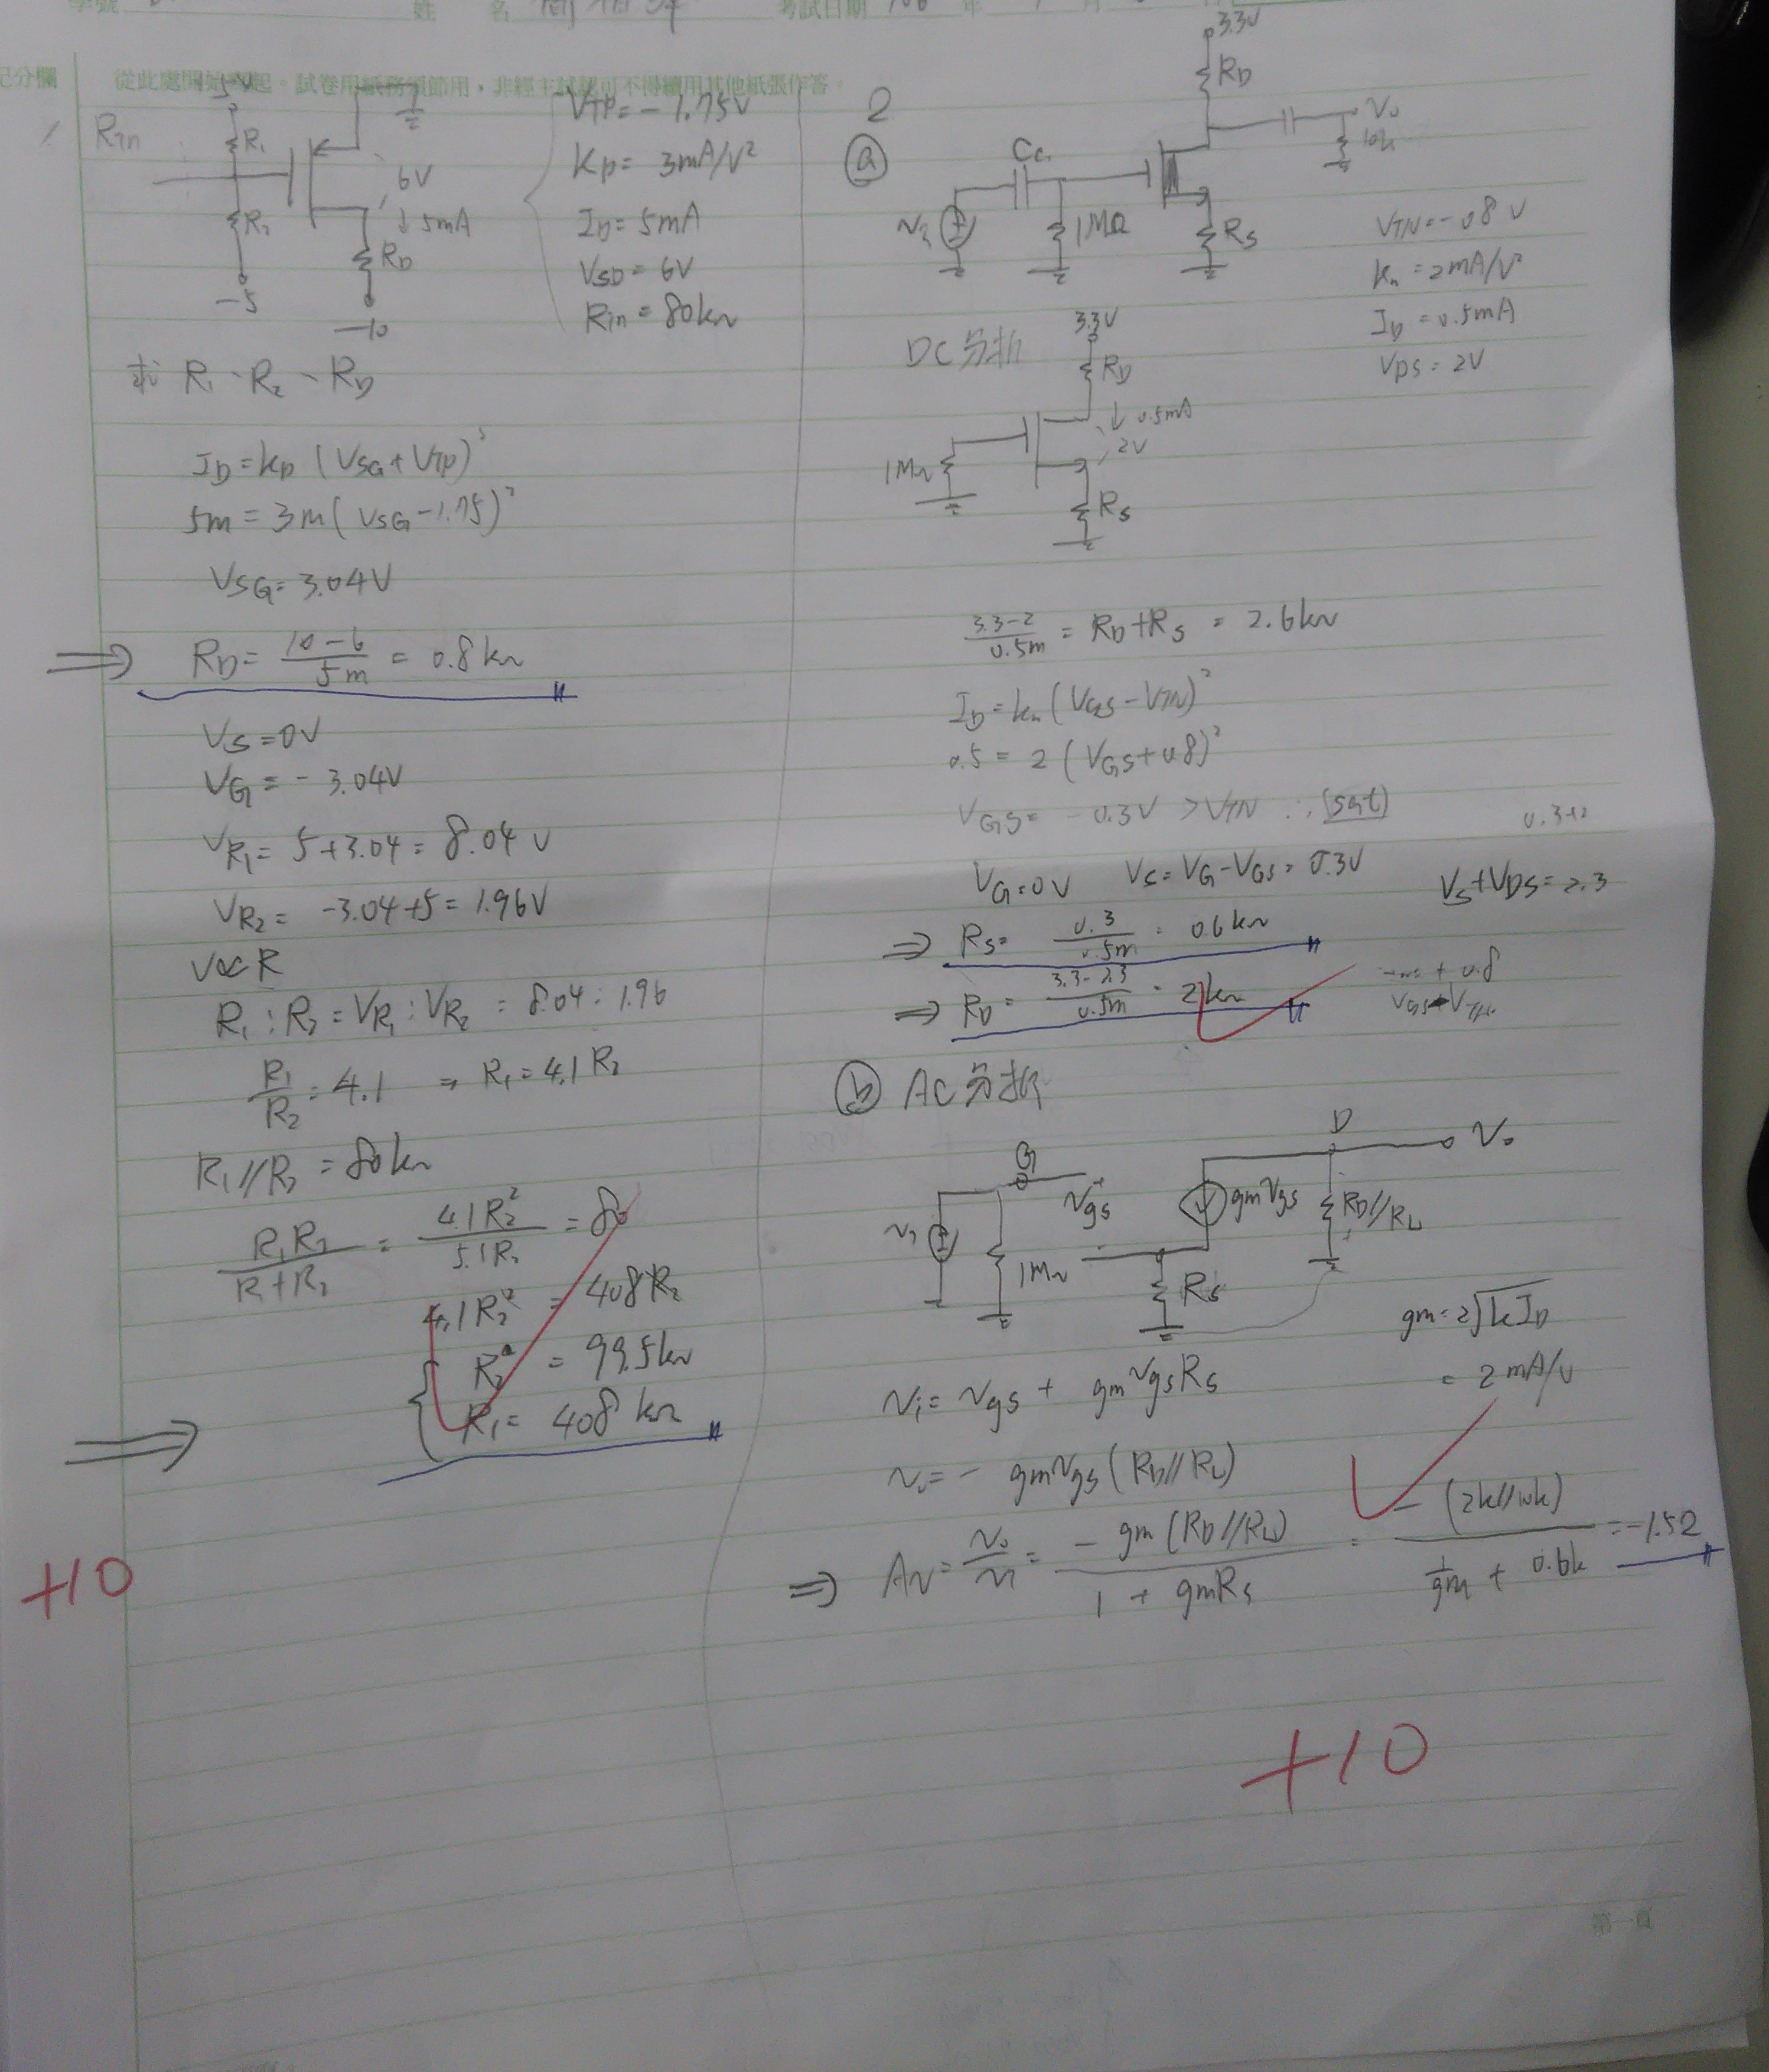 學號
姓 名
考試日期 106 年 月
記分欄
從此處開始寫起。試卷用紙務須節用,非經主試認可不得續用其他紙張作答。
Rin
5V
R₁
R₂
-5
6V
↓ 5mA
RD
-10
VTP = -1.75V
Kp = 3mA/V²
ID = 5mA
VSD = 6V
Rin = 80kΩ
求 R₁、R₂、RD
ID = kp (VSG + VTP)²
5m = 3m (VSG - 1.75)²
VSG = 3.04V
⇒ RD = (10-6)/5m = 0.8kΩ
VS = 0V
VG = -3.04V
VR₁ = 5 + 3.04 = 8.04V
VR₂ = -3.04 + 5 = 1.96V
V∝R
R₁ : R₂ = VR₁ : VR₂ = 8.04 : 1.96
R₁/R₂ = 4.1 ⇒ R₁ = 4.1 R₂
R₁//R₂ = 80kΩ
R₁R₂/(R₁+R₂) = 4.1R₂²/5.1R₂ = 80
4.1R₂² = 408R₂
R₂ = 99.5kΩ
⇒ R₁ = 408 kΩ
+10
2
ⓐ
3.3V
RD
Vo
10k
Cc
Vi
1MΩ
RS
VTN = -0.8V
kn = 2mA/V²
ID = 0.5mA
VDS = 2V
DC分析
3.3V
RD
↓ 0.5mA
2V
1MΩ
RS
(3.3-2)/0.5m = RD + RS = 2.6kΩ
ID = kn (VGS - VTN)²
0.5 = 2 (VGS + 0.8)²
VGS = -0.3V > VTN ∴ (sat)
0.3+2
VG = 0V VS = VG - VGS = 0.3V
VS + VDS = 2.3
⇒ RS = 0.3/0.5m = 0.6kΩ
⇒ RD = (3.3-2.3)/0.5m = 2kΩ
ⓑ AC分析
G
D
Vo
Vi
1MΩ
Vgs
gmVgs
RD//RL
RS
gm = 2√(kID)
= 2 mA/V
Vi = Vgs + gmVgsRS
Vo = - gmVgs (RD//RL)
⇒ Av = Vo/Vi = -gm(RD//RL)/(1 + gmRS) = -(2k//10k)/(1/gm + 0.6k) = -1.52
+10
第一頁